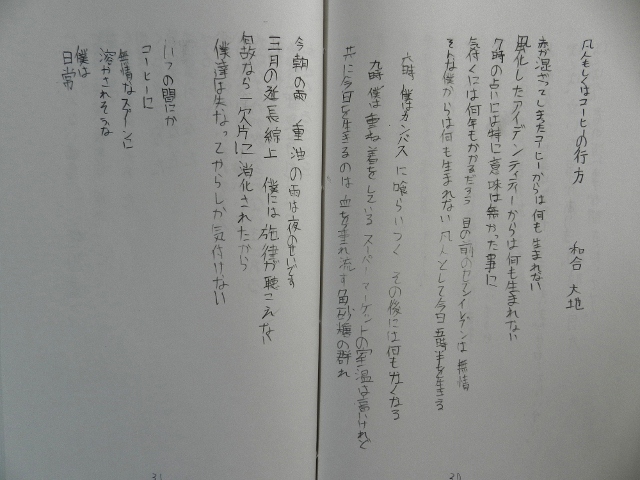 凡人もしくはコーヒーの行方
和合 大地
赤が混ざってしまったコーヒーからは何も生まれない
風化したアイデンティティーからは何も生まれない
7時の占いには特に意味は無かった事に
気付くには何年もかかるだろう 目の前の は無情
そんな僕からは何も生まれない 凡人として今日 五時半を生きる
六時 僕はカンバスに喰らいつく その後には何もなくなる
九時 僕は重ね着をしている スーパーマーケットの室温は高いけれど
共に今日を生きるのは 血を 流す角砂糖の群れ
今朝の雨 重油の雨は夜のせいです
三月の延長線上 僕には旋律が聴こえない
何故なら一欠片に消化されたから
僕達は失なってからしか気付けない
いつの間にか
コーヒーに
無情なスプーンに
溶かされそうな
僕は
日常
31
30